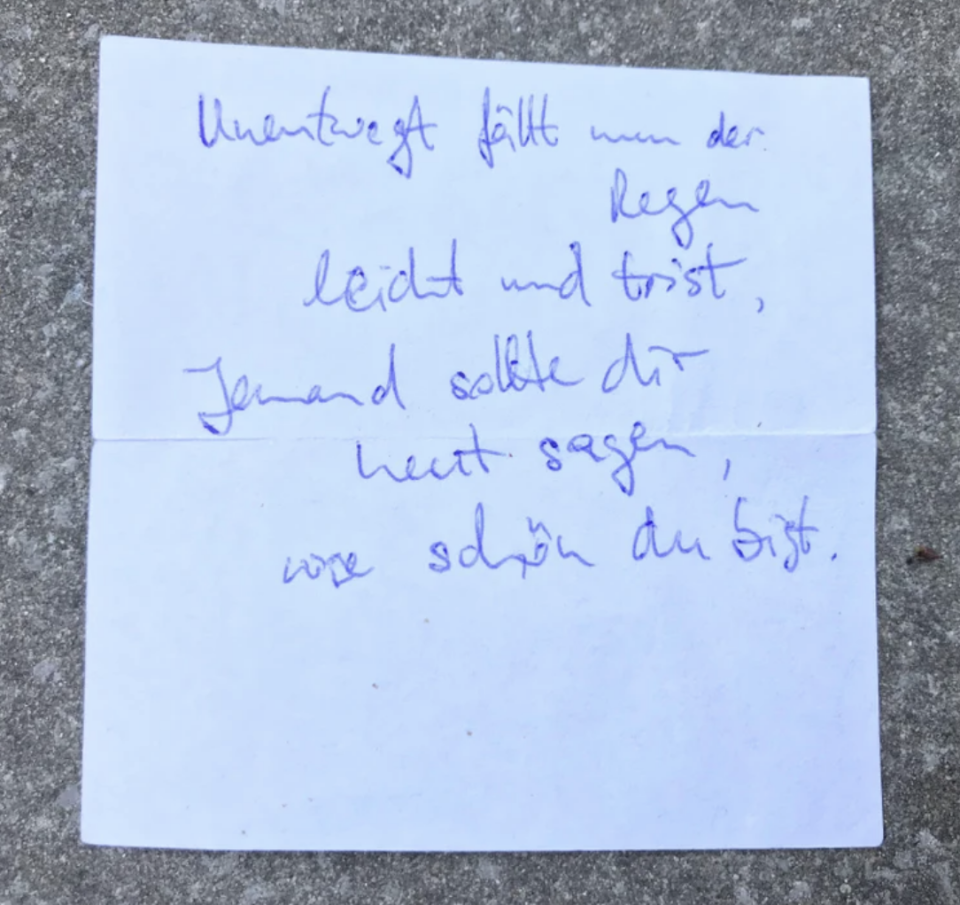 Unentwegt fällt nun der
Regen
leicht und trist,
Jemand sollte dir
heut sagen,
wie schön du bist.